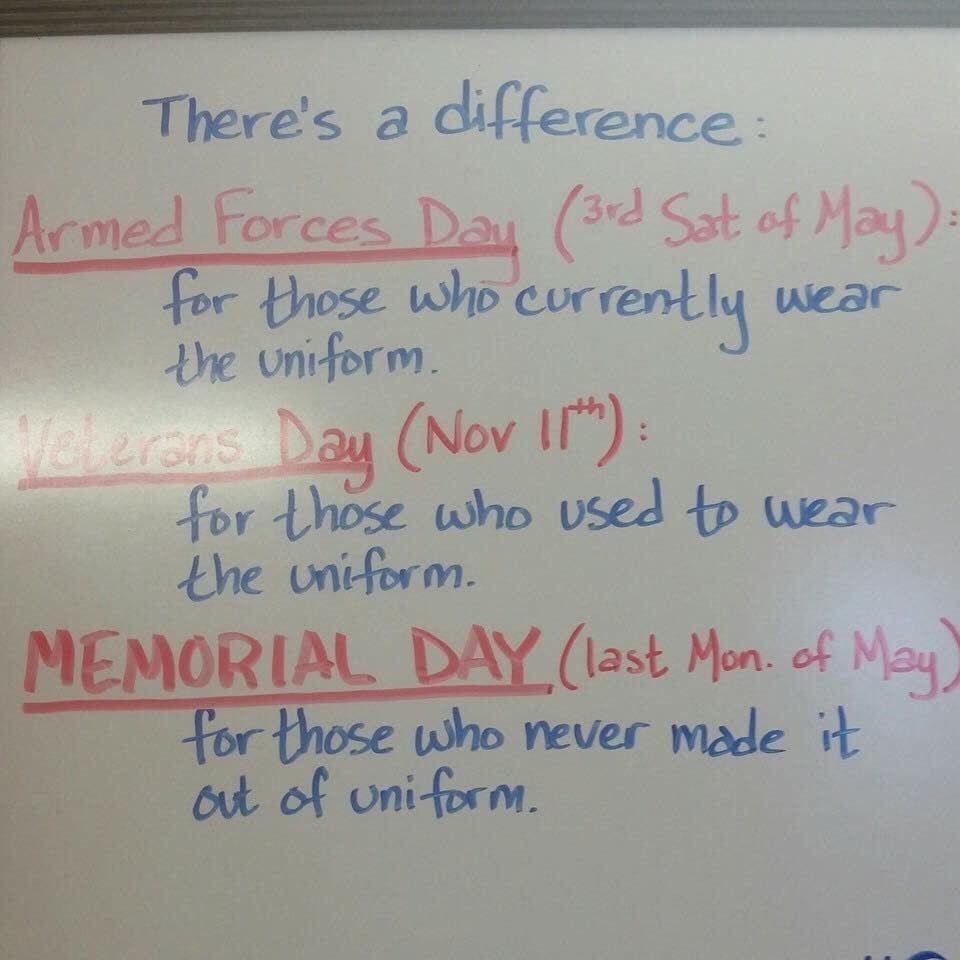 There's a difference:
Armed Forces Day (3rd Sat of May):
for those who currently wear
the uniform.
Veterans Day (Nov 11th):
for those who used to wear
the uniform.
MEMORIAL DAY (last Mon. of May)
for those who never made it
out of uniform.